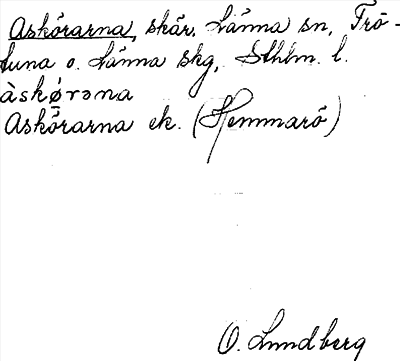 Askörarna, skär, Länna sn, Frö-
tuna o. Länna skg, Sthlm. l.
àskǿrəna
Askörarna ek. (Hemmarö)
O. Lundberg